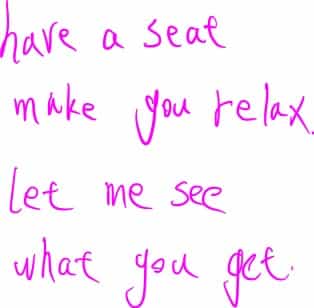 have a seat
make you relax.
let me see
what you get.